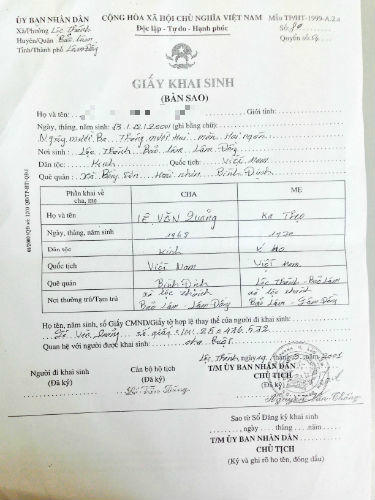 ỦY BAN NHÂN DÂN
CỘNG HÒA XÃ HỘI CHỦ NGHĨA VIỆT NAM
Mẫu TP/HT-1999-A.2.a
Xã/Phường Lộc Thành
Độc lập - Tự do - Hạnh phúc
Số: 80
Huyện/Quận Bảo Lâm
Quyển số:
Tỉnh/Thành phố Lâm Đồng
GIẤY KHAI SINH
(BẢN SAO)
Họ và tên: Giới tính:
Ngày, tháng, năm sinh: 13.12.2000 (ghi bằng chữ):
Ngày mười Ba Tháng mười Hai năm Hai ngàn
Nơi sinh: Lộc Thành Bảo Lâm Lâm Đồng
Dân tộc: Kinh Quốc tịch: Việt Nam
Quê quán: Xã Hoài nhơn Bình Định
Phần khai về cha, mẹ
CHA
MẸ
Họ và tên
LÊ VĂN Quảng
Ka Thẹo
Ngày, tháng, năm sinh
1968
1970
Dân tộc
Kinh
K'Ho
Quốc tịch
Việt Nam
Việt Nam
Quê quán
Bình Định
Lộc Thành - Bảo Lâm
Nơi thường trú/Tạm trú
xã Lộc Thành
Bảo Lâm - Lâm Đồng
xã Lộc Thành
Bảo Lâm - Lâm Đồng
Họ tên, năm sinh, số Giấy CMND/Giấy tờ hợp lệ thay thế của người đi khai sinh:
Lê Văn Quảng, số giấy CM: 250476572
Quan hệ với người được khai sinh: cha ruột
Lộc Thành, ngày 14 tháng 3 năm 2001
Người đi khai sinh
(Đã ký)
Cán bộ hộ tịch
(Đã ký)
T/M ỦY BAN NHÂN DÂN
CHỦ TỊCH
(Đã ký)
Sao từ Sổ Đăng ký khai sinh
, ngày tháng năm
T/M ỦY BAN NHÂN DÂN
CHỦ TỊCH
(Ký và ghi rõ họ tên, đóng dấu)